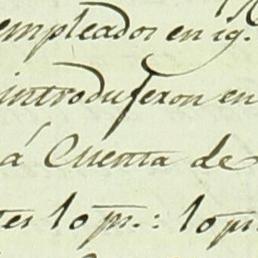 empleados en ig.
introdugeron en
á Cuenta de
tes 10 ps.: 10 ps